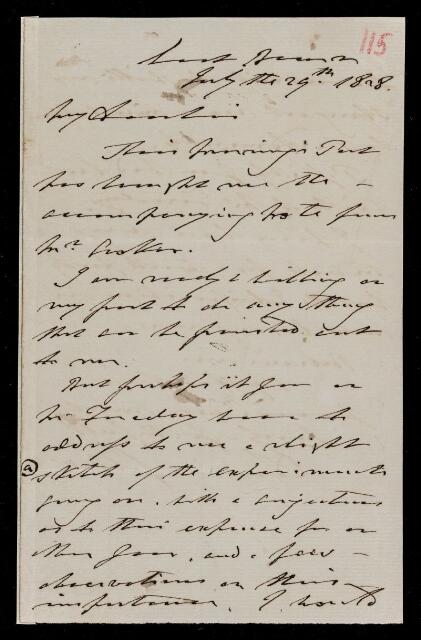 115
East Down
July the 29th 1828.
My Dear Sir
This morning's Post
has brought me the
accompanying note from
Mr. Croker.
I am ready & willing on
my part to do any thing
that can be pointed out
to me.
But perhaps if you or
Mr Faraday were to
address to me a slight
sketch of the experiments
going on, with a conjecture
as to their expense for an
other year, and a few
observations on their
importance, I would
a